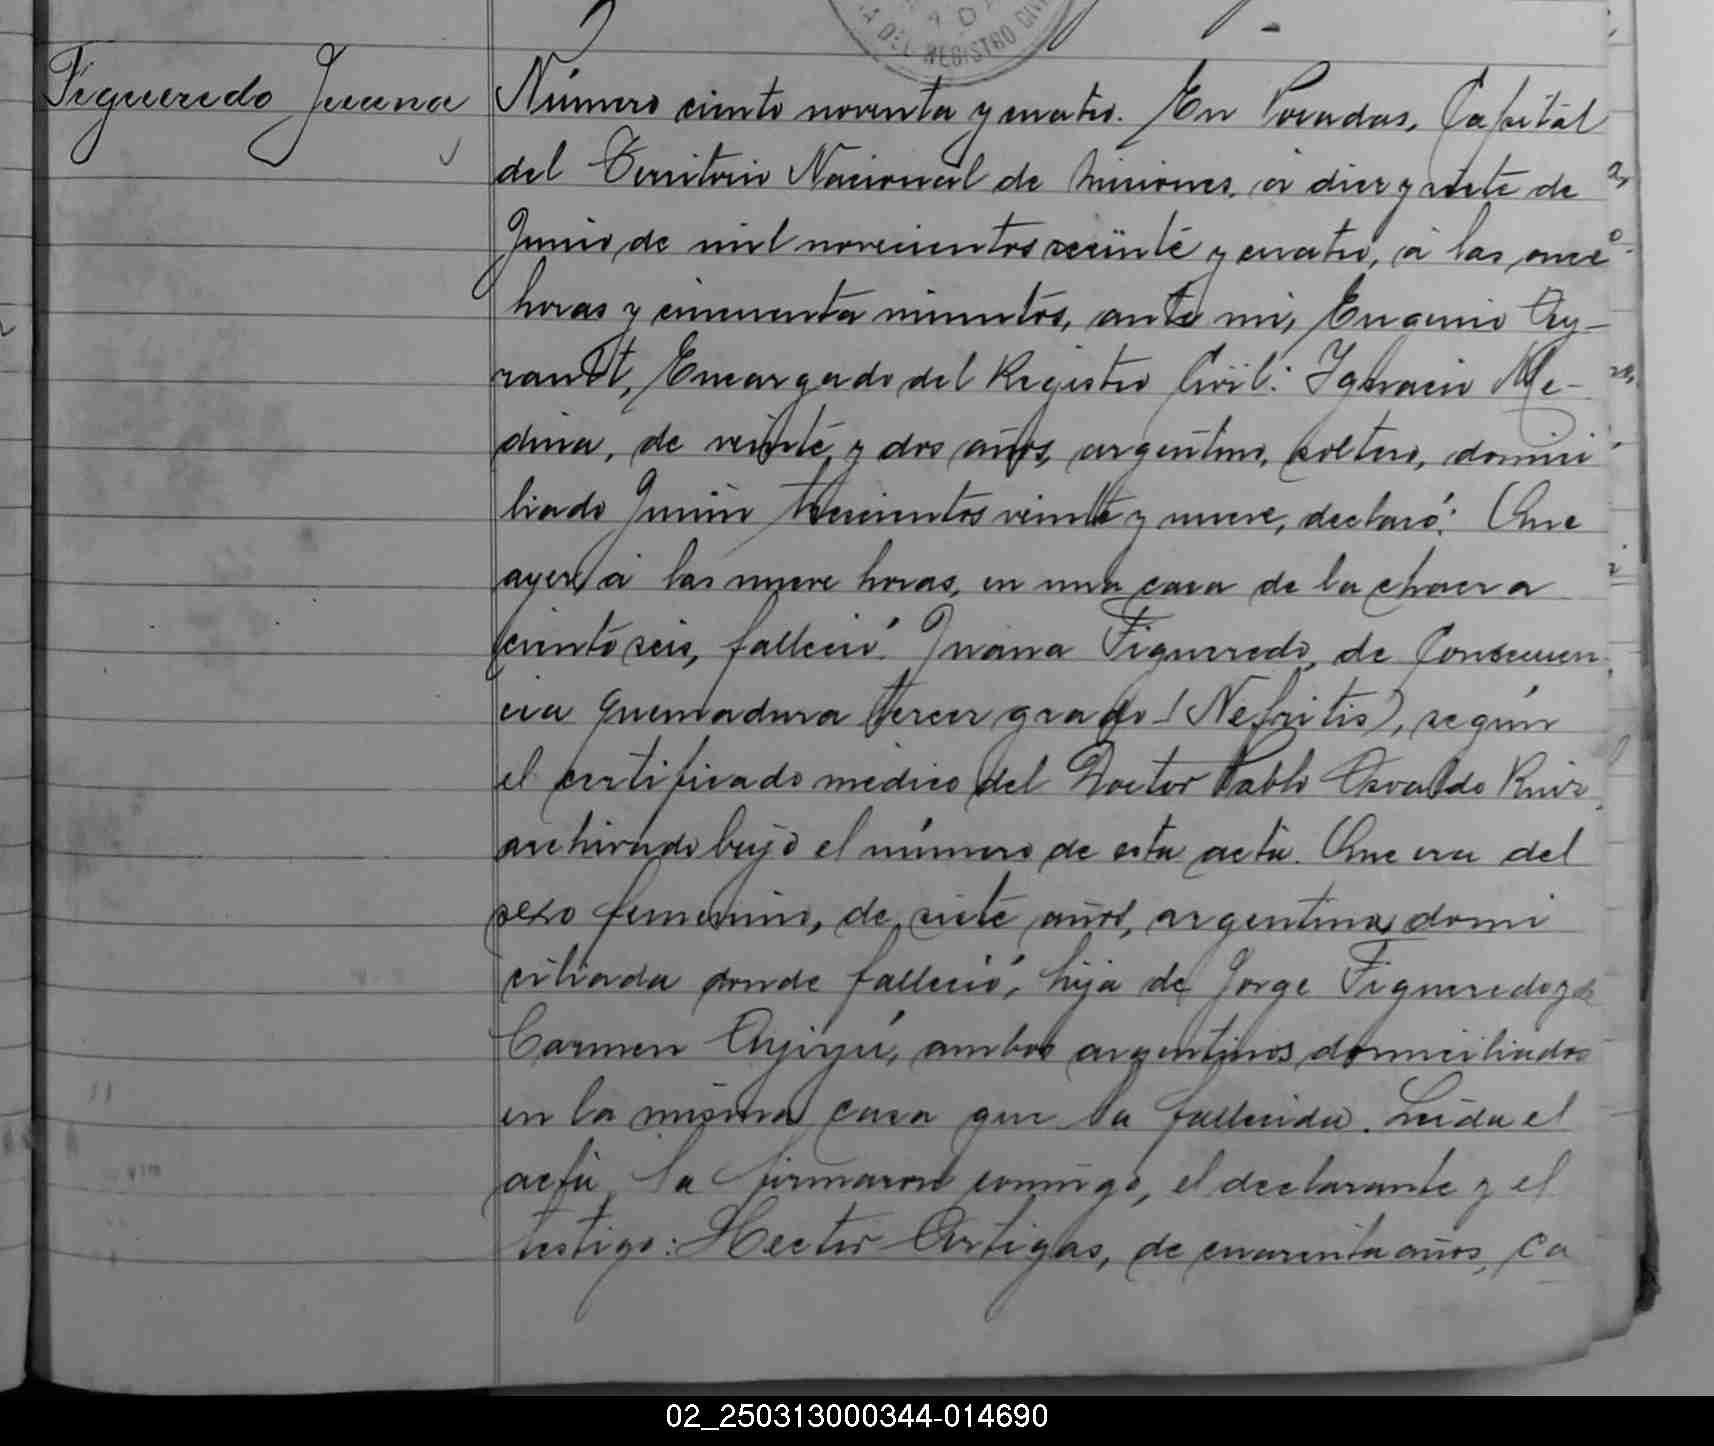 DEL REGISTRO CIVIL
Figueredo Juana
Número ciento noventa y cuatro. En Posadas, Capital
del Territorio Nacional de Misiones, á diez y siete de
Junio de mil novecientos veinte y cuatro, á las once
horas y cincuenta minutos, ante mi, Eugenio Ay-
rault, Encargado del Registro Civil: Ignacio Me-
dina, de veinte y dos años, argentino, soltero, domici
liado Junin trescientos veinte y nueve, declaró: Que
ayer, á las nueve horas, en una casa de la chacra
ciento seis, falleció Juana Figueredo, de Consecuen
cia quemadura tercer grado (Nefritis), según
el certificado médico del Doctor Pablo Osvaldo Ruiz
archivado bajo el número de esta acta. Que era del
sexo femenino, de siete años, argentina, domi
ciliada donde falleció, hija de Jorge Figueredo y de
Carmen ambos argentinos domiciliados
en la misma casa que la fallecida. Leida el
acta la firmaron conmigo, el declarante y el
testigo: Hector Artigas, de cuarenta años, ca
02_250313000344-014690